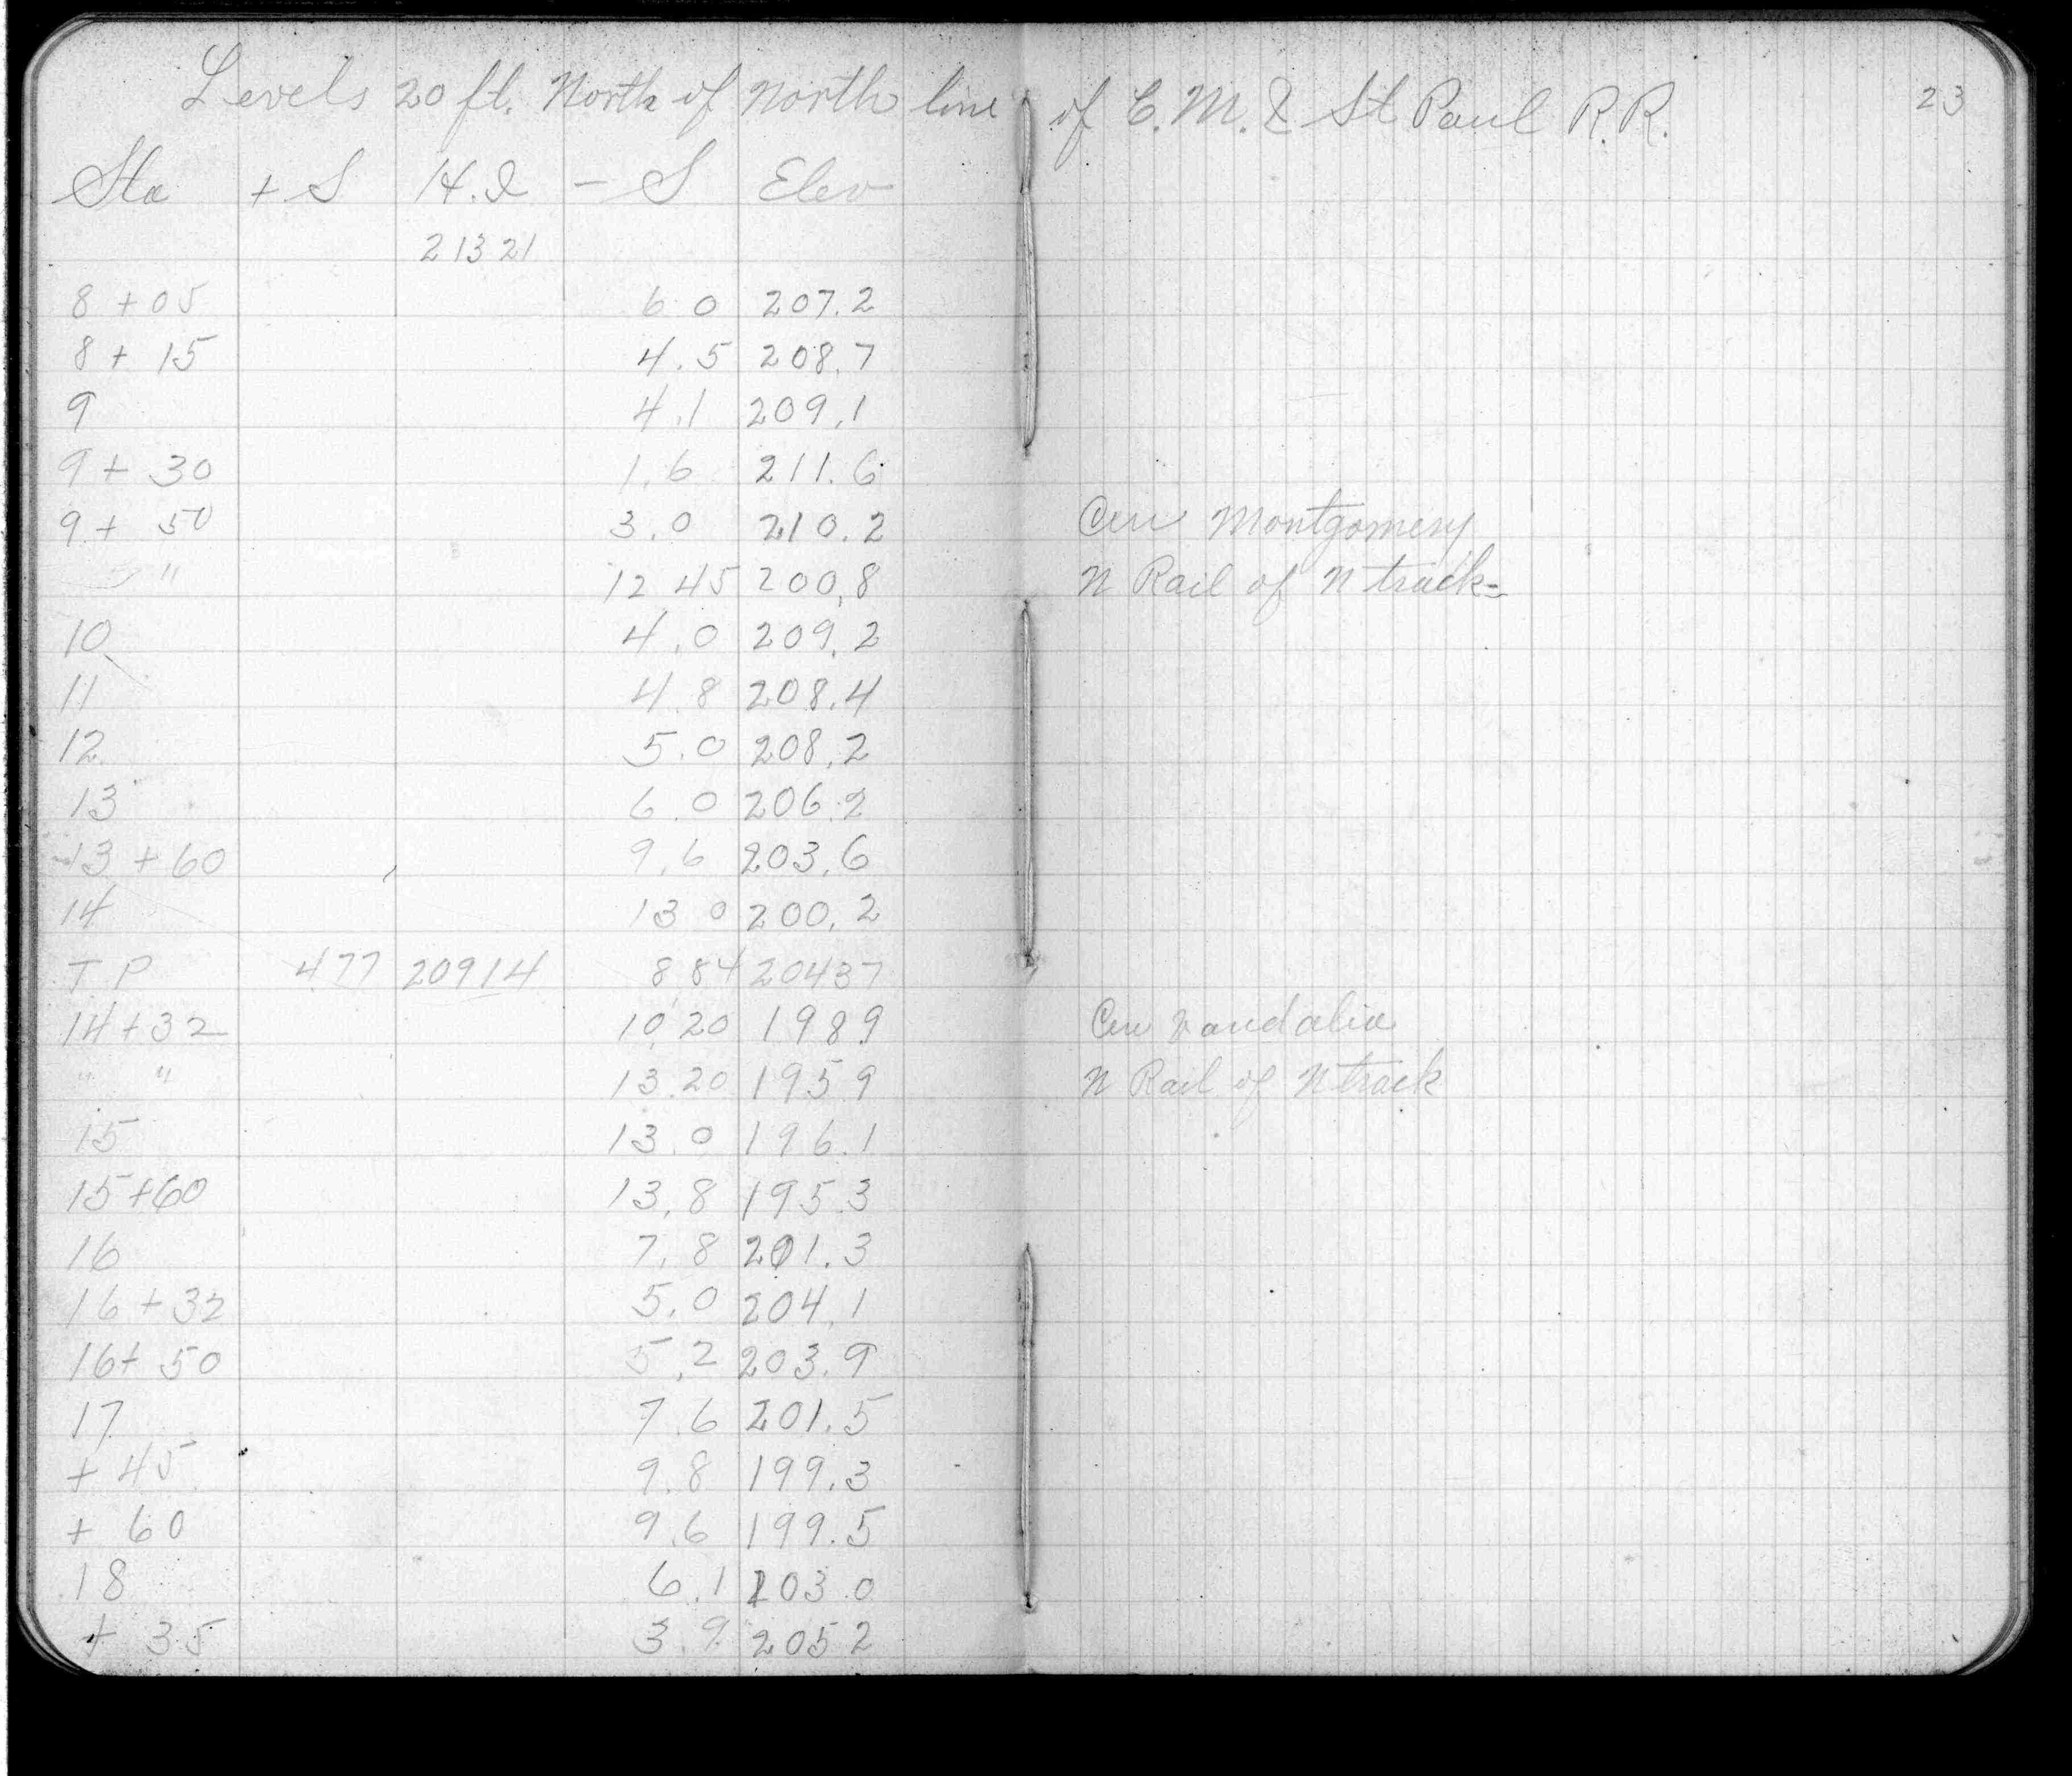 Levels 20 ft. North of North line of C. M. & St Paul R.R. 23
Sta + S H.I - S Elev
213 21
8 + 05 6 0 207.2
8 + 15 4.5 208.7
9 4.1 209.1
9 + 30 1.6 211.6
9 + 50 3.0 210.2 Cen Montgomery
" 12 45 200.8 N Rail of N track
10 4.0 209.2
11 4.8 208.4
12 5.0 208.2
13 6.0 206.2
13 + 60 9.6 203.6
14 13 0 200.2
T P 4 77 209 14 8.84 204 37
14 + 32 10.20 198 9 Cen Vandalia
" " 13.20 195 9 N Rail of N track
15 13.0 196.1
15 + 60 13.8 195.3
16 7.8 201.3
16 + 32 5.0 204.1
16 + 50 5.2 203.9
17 7.6 201.5
+ 45 9.8 199.3
+ 60 9.6 199.5
18 6.1 203.0
+ 35 3.9 205 2